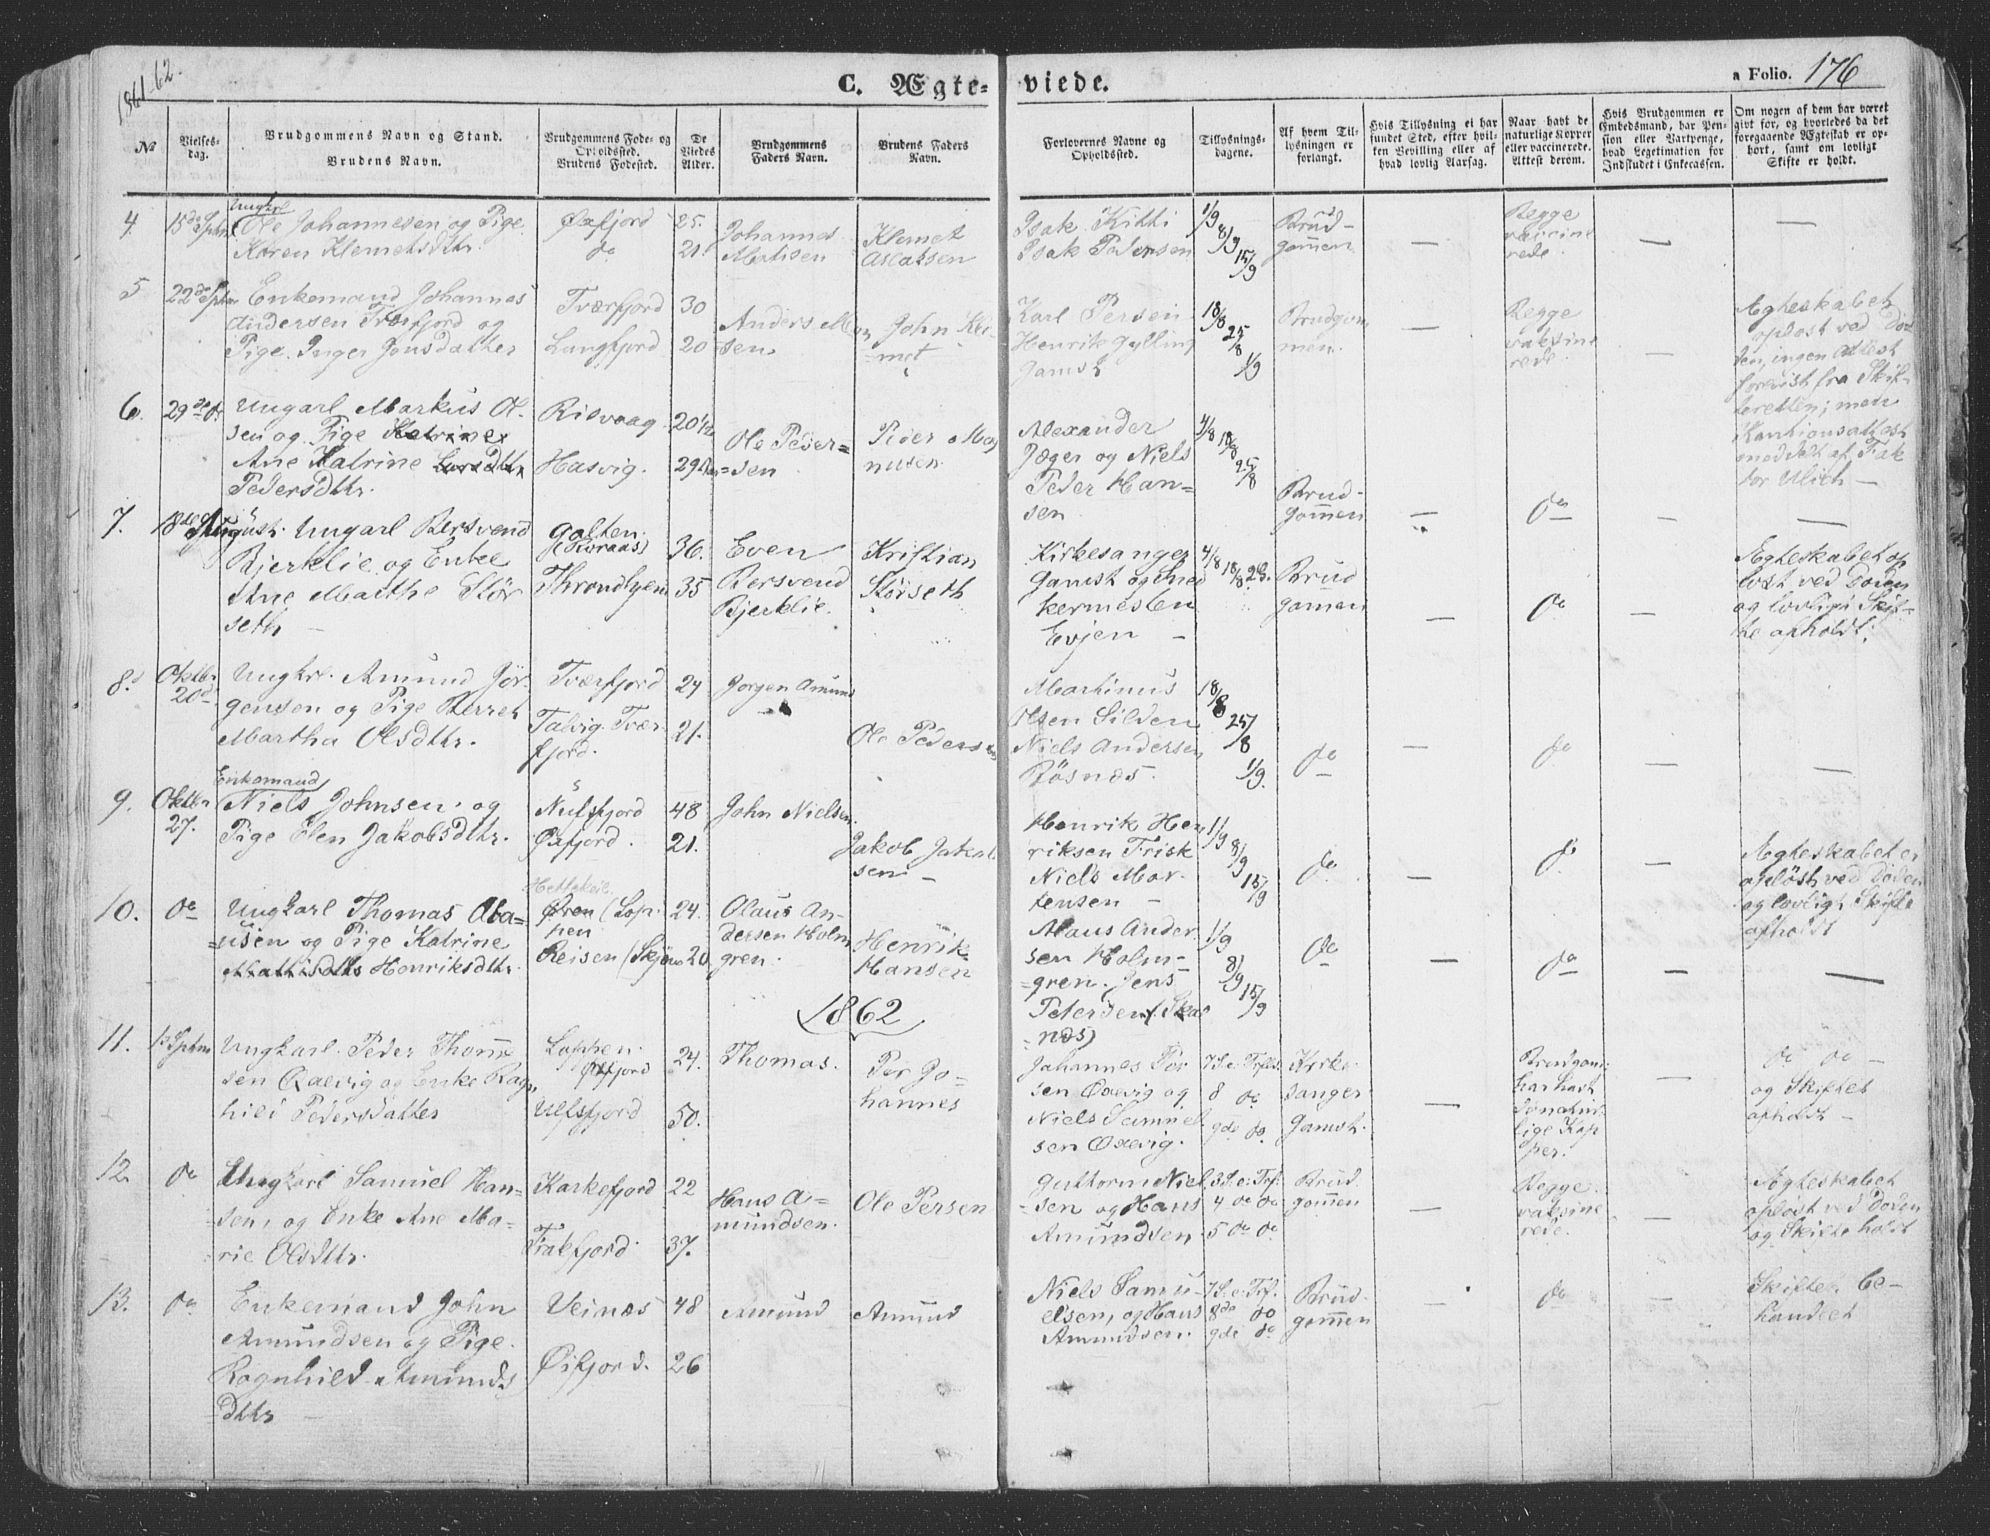 1861-62.
C. Ægte-
viede.
a Folio. 176
No
Vielses-
dag.
Brudgommens Navn og Stand.
Brudens Navn.
Brudgommens Føde- og
Opholdssted.
Brudens Fødested.
De
Viedes
Alder.
Brudgommens
Faders Navn.
Brudens Faders
Navn.
Forlovernes Navne og
Opholdssted.
Tillysnings-
dagene.
Af hvem Til-
lysningen er
forlangt.
Hvis Tillysning ei har
fundet Sted, efter hvil-
ken Bevilling eller af
hvad lovlig Aarsag.
Naar havt de
naturlige Kopper
eller vaccinerede.
Attest derom.
Hvis Brudgommen er
Embedsmand, har Pen-
sion eller Vartpenge,
hvad Legetimation for
Indskudet i Enkecassen.
Om nogen af dem har været
gift før, og hvorledes da det
foregaaende Ægteskab er op-
hørt, samt om lovligt
Skifte er holdt.
4. 15de Sptbr
Ungkrl
Ole Johannesen og Pige
Karen Klemetsdtr.
Øxfjord
do
25.
21.
Johannes
Mathisen
Klemet
Aslaksen
Isak Kitti
Isak Pedersen
1/9
8/9
15/9
Brud-
gommen
—
Begge
vaccine
rede
—
—
5 22de Sptbr
Enkemand Johannes
Andersen Tværfjord og
Pige Inger Jonsdatter
Tværfjord
Langfjord
30
20
Anders
sen
John Kle-
met
Karl Persen
Henrik Gylling
Gamst
18/8
25/8
1/9
Brudgom
men.
—
Begge
vaksine
rede
—
Ægteskabet
opløst ved Dø
den, ingen Attest
forevist fra Skif-
teretten; men
Kautionsattest
meddelt af Fak
tor Ulich —
6. 29de do
Ungkarl Markus Ol-
sen og Pige Katrine
Ane Katrine Larsdtr
Pedersdtr.
Risvaag
Hasvig.
20 1/2
29
Ole Peder=
=sen
Peder Mag
nusen
Alexander
Jæger og Niels
Peder Han=
sen
4/8
18/8
25/8
Brud-
gommen
—
do
—
—
7. 18de August
Ungkarl Bersvend
Bjerklie og Enke
Ane Marthe Stør
seth —
Galten
(Roraas)
Throndhjem
36.
35
Even
Bersvend
Bjerklie.
Kristian
Störseth
Kirkesanger
Gamst og Sned
kermester
Evjen —
4/8 18/8 25.
Brud
gommen
—
do
—
Ægteskabet op
løst ved Døden
og lovligt Skif-
te afholdt.
8. Oktbr
20d
Ungkrl. Amund Jør
gensen og Pige Berret
Martha Olsdtr.
Tværfjord
Talvig Tvær
fjord.
24
21.
Jørgen Amund
Ole Pedersen
Martinus
Olsen Silden
Niels Andersen
Bösnæs.
18/8
25/8
1/9.
do
—
do
—
—
9. Oktbr
27.
Enkemand
Niels Johnsen, og
Pige Elen Jakobsdtr.
Nufsfjord
Øxfjord.
48
21.
John Nielsen.
Jakob Jakob
sen —
Henrik Hen
riksen Frisk
Niels Mor-
tensen —
1/9
8/9
15/9
do
do
—
Ægteskabet er
opløst ved Døden
og lovligt Skifte
afholdt
10. do
Ungkarl Thomas Ola=
=usen og Pige Katrine
Mathisdtr Henriksdtr.
Øren (Lop-
pen
Reisen (Skjer
24.
20
Olaus An-
dersen Holm
gren.
Henrik
Hansen
Olaus Ander
sen Holm-
gren. Jens
Petersen (Ska
næs)
1/9
8/9
15/9
do
—
do
—
—
1862
11. Sptbr
Ungkarl Peder Thom
sen Oxevig og Enke Ragn
hild Pedersdatter
Loppen.
Øxfjord
Ulfsfjord
24.
50.
Thomas.
Per Jo-
hannes
Johannes Per
sen Oxevig og
Niels Samuel
sen Oxevig.
7 S. e. Trflds
8 do
9de do
Kirke
sanger
Gamst.
—
Brudgom
har havt
de natur
lige Kop
per.
—
do do —
og Skiftet
afholdt —
12. do
Ungkarl Samuel Han-
sen, og Enke Ane Ma-
rie Olsdtr.
Karkefjord
Frakfjord.
22
37.
Hans A=
mundsen.
Ole Persen
Guttorm Niel
sen og Hans
Amundsen
3 S. e. Trf.
4 do do
5 do do
Brud
gommen
—
Begge
vaksine
rede.
—
Ægteskabet
opløst ved Døden
og Skifte holdt
13. do
Enkemand John
Amundsen og Pige
Ragnhild Amunds
=dttr —
Veinæs
Øxfjord.
48
26
Amund
Amund
Niels Samu-
elsen, og Hans
Amundsen.
7 S. e. Trf.
8de do
9de do
Brud-
gommen
—
do
—
Skiftet be-
handlet